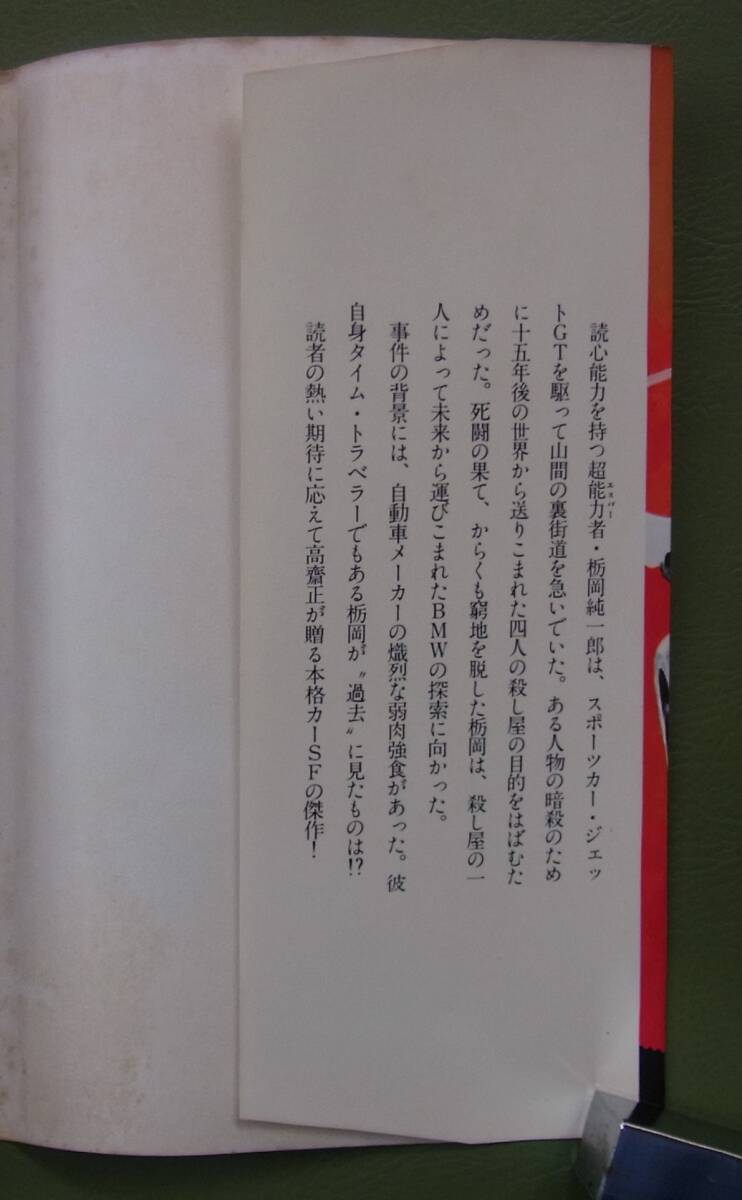 読心能力を持つ超能力者・栃岡純一郎は、スポーツカー・ジェッ
エスパー
トGTを駆って山間の裏街道を急いでいた。ある人物の暗殺のため
に十五年後の世界から送りこまれた四人の殺し屋の目的をはばむた
めだった。死闘の果て、からくも窮地を脱した栃岡は、殺し屋の一
人によって未来から運びこまれたBMWの探索に向かった。
事件の背景には、自動車メーカーの熾烈な弱肉強食があった。彼
自身タイム・トラベラーでもある栃岡が〝過去〟に見たものは!?
読者の熱い期待に応えて高齋正が贈る本格カーSFの傑作！